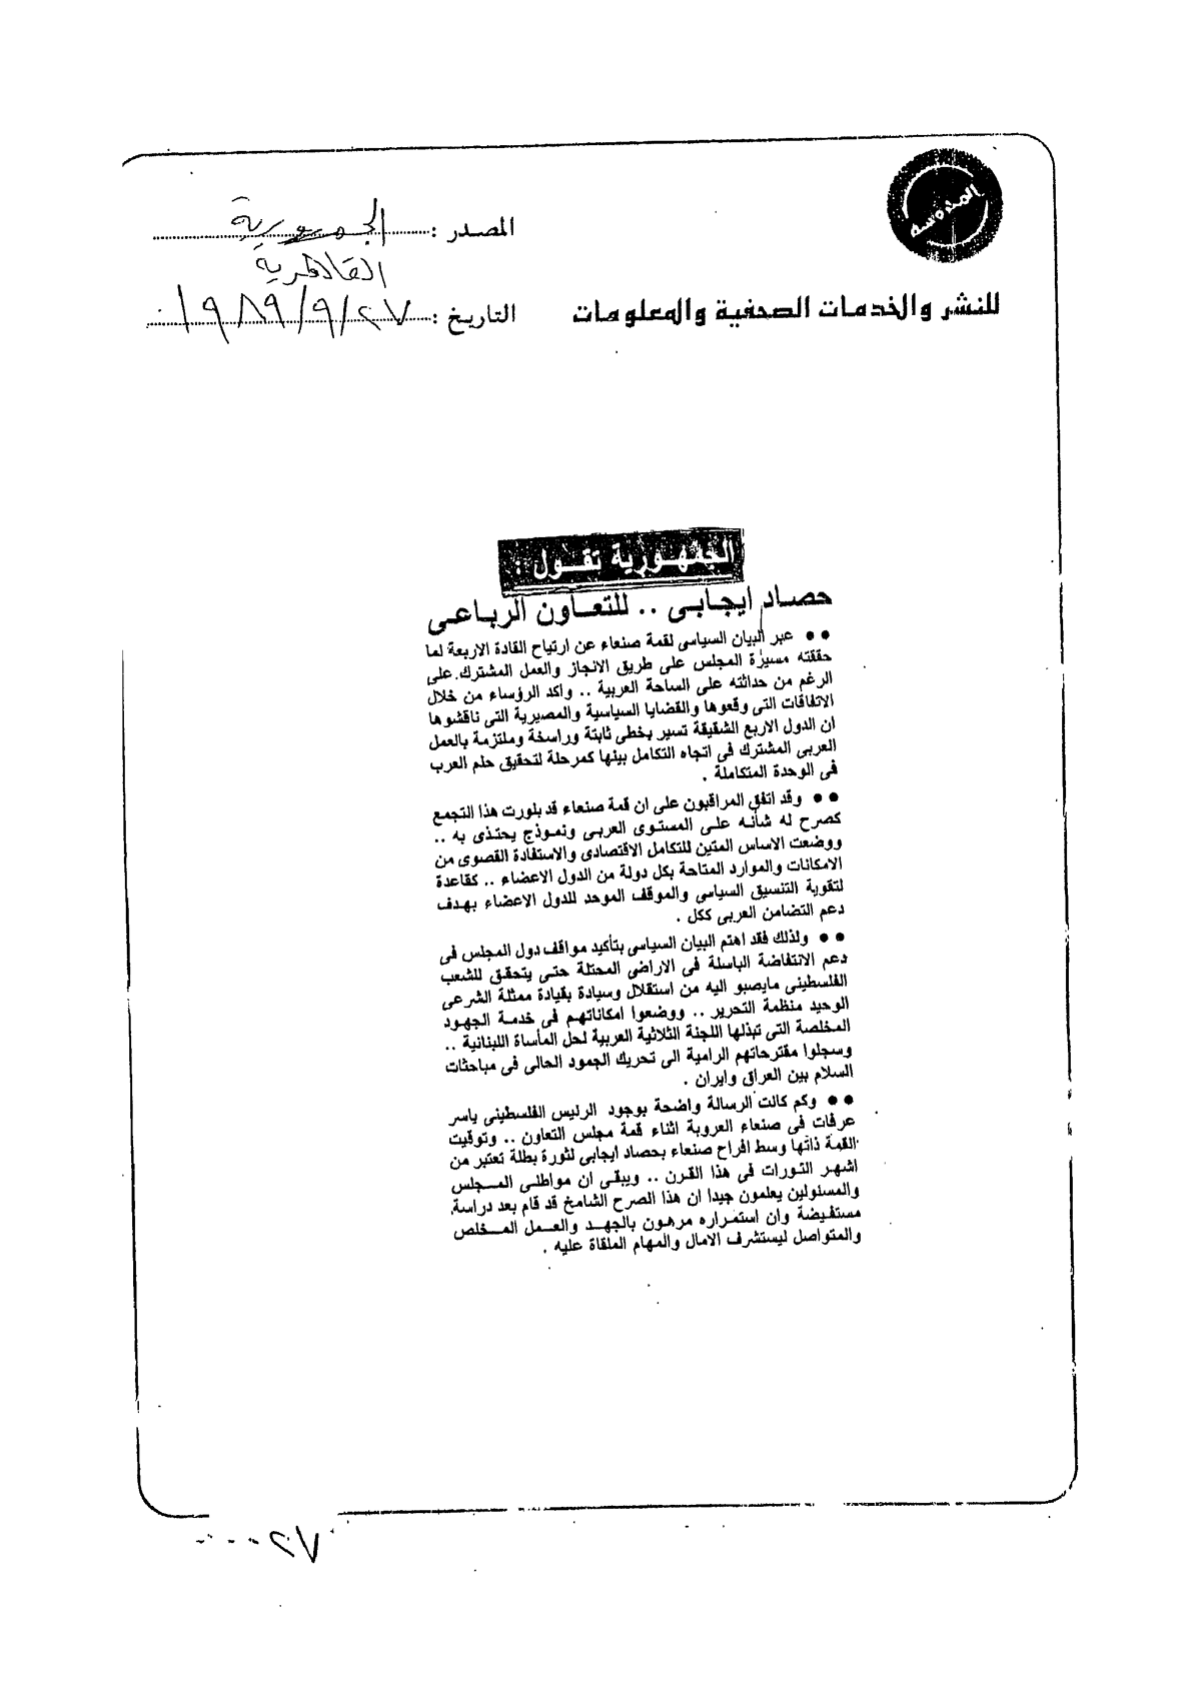 المصدر : الجمهورية
القاهرية
للنشر والخدمات الصحفية والمعلومات
التاريخ : ٢٧/٩/١٩٨٩
الجمهورية تقول :
حصاد ايجابى .. للتعاون الرباعى
●● عبر البيان السياسى لقمة صنعاء عن ارتياح القادة الاربعة لما
حققته مسيرة المجلس على طريق الانجاز والعمل المشترك على
الرغم من حداثته على الساحة العربية .. واكد الرؤساء من خلال
الاتفاقات التى وقعوها والقضايا السياسية والمصيرية التى ناقشوها
ان الدول الاربع الشقيقة تسير بخطى ثابتة وراسخة وملتزمة بالعمل
العربى المشترك فى اتجاه التكامل بينها كمرحلة لتحقيق حلم العرب
فى الوحدة المتكاملة .
●● وقد اتفق المراقبون على ان قمة صنعاء قد بلورت هذا التجمع
كصرح له شأنه على المستوى العربى ونموذج يحتذى به ..
ووضعت الاساس المتين للتكامل الاقتصادى والاستفادة القصوى من
الامكانات والموارد المتاحة بكل دولة من الدول الاعضاء .. كقاعدة
لتقوية التنسيق السياسى والموقف الموحد للدول الاعضاء بهدف
دعم التضامن العربى ككل .
●● ولذلك فقد اهتم البيان السياسى بتأكيد مواقف دول المجلس فى
دعم الانتفاضة الباسلة فى الاراضى المحتلة حتى يتحقق للشعب
الفلسطينى مايصبو اليه من استقلال وسيادة بقيادة ممثلة الشرعى
الوحيد منظمة التحرير .. ووضعوا امكاناتهم فى خدمة الجهود
المخلصة التى تبذلها اللجنة الثلاثية العربية لحل المأساة اللبنانية ..
وسجلوا مقترحاتهم الرامية الى تحريك الجمود الحالى فى مباحثات
السلام بين العراق وايران .
●● وكم كانت الرسالة واضحة بوجود الرئيس الفلسطينى ياسر
عرفات فى صنعاء العروبة اثناء قمة مجلس التعاون .. وتوقيت
القمة ذاتها وسط افراح صنعاء بحصاد ايجابى لثورة بطلة تعتبر من
اشهر الثورات فى هذا القرن .. ويبقى ان مواطنى المجلس
والمسئولين يعلمون جيدا ان هذا الصرح الشامخ قد قام بعد دراسة
مستفيضة وان استمراره مرهون بالجهد والعمل المخلص
والمتواصل ليستشرف الامال والمهام الملقاة عليه .
٢٧